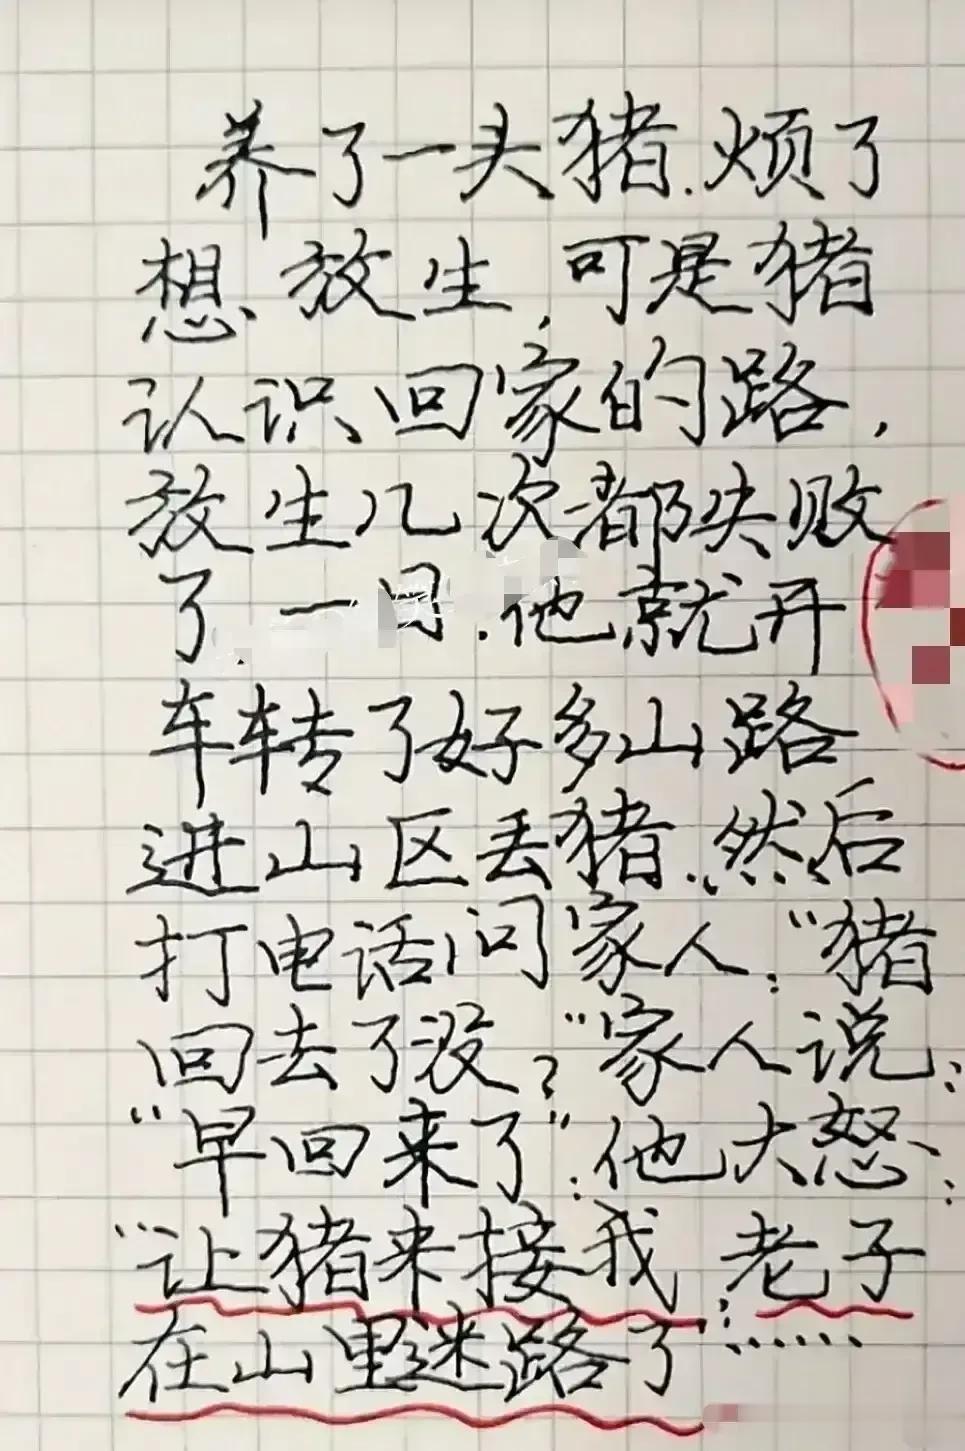 养了一头猪.烦了
想放生,可是猪
认识回家的路,
放生几次都失败
了.一日.他就开
车转了好多山路
进山区丢猪.然后
打电话问家人:“猪
回去了没?”家人说:
“早回来了”.他大怒:
“让猪来接我,老子
在山里迷路了……